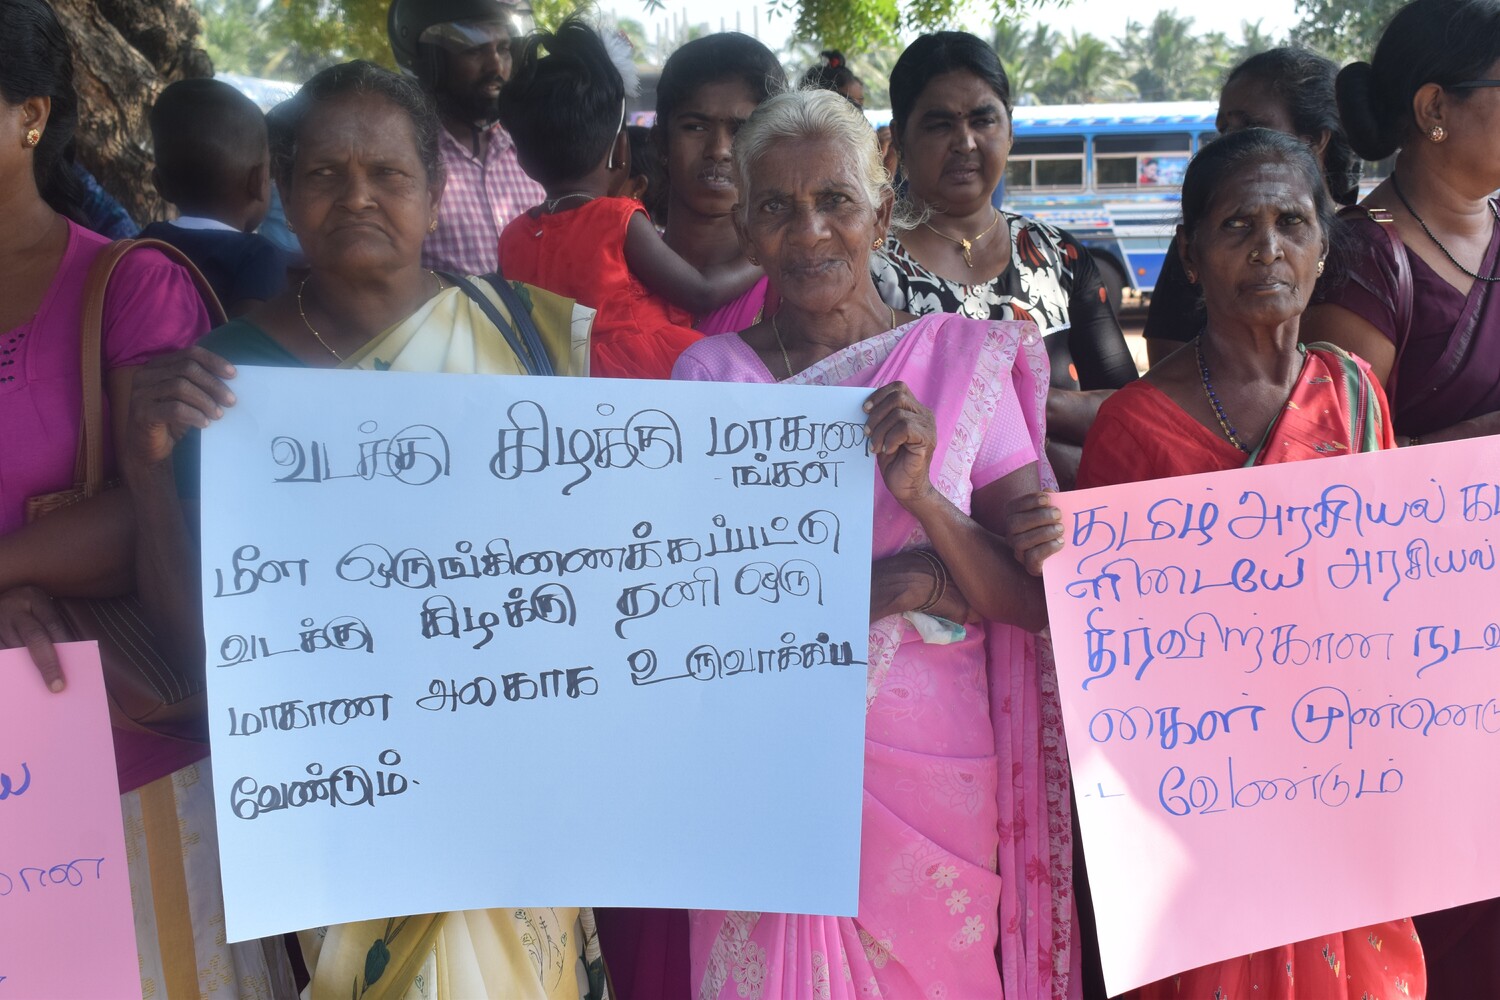 வடக்கு கிழக்கு மாகாண
ங்கள்
மீள ஒருங்கிணைக்கப்பட்டு
வடக்கு கிழக்கு தனி ஒரு
மாகாண அலகாக உருவாக்கப்பட
வேண்டும்.
தமிழ் அரசியல் க
ளிடையே அரசியல்
தீர்விற்கான நடவ
கைகள் முன்னெடு
ட வேண்டும்
ய
ான